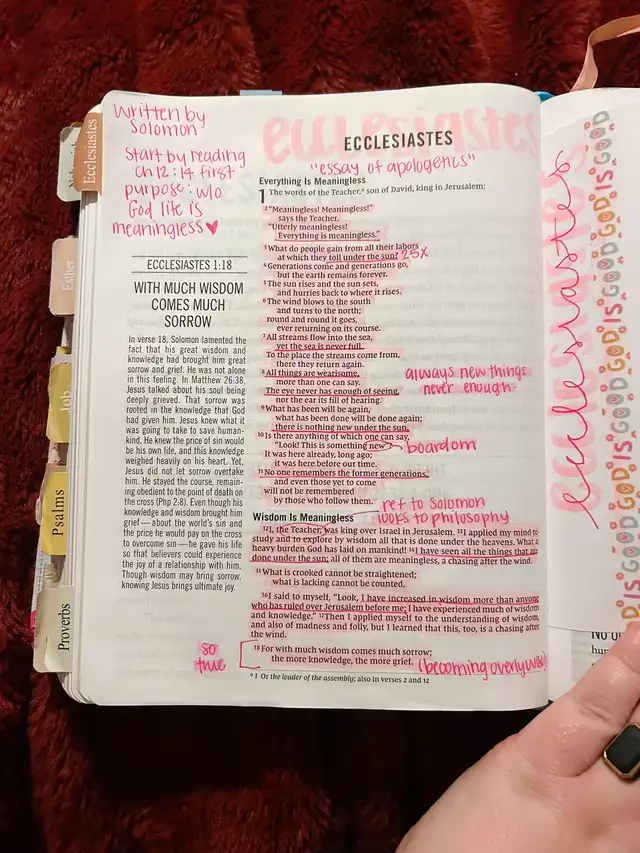 written by
Solomon
Start by reading
Ch 12:14 first
purpose: w/o
God life is
meaningless
Ecclesiastes
Esther
Job
Psalms
Proverbs
ECCLESIASTES 1:18
WITH MUCH WISDOM
COMES MUCH
SORROW
In verse 18, Solomon lamented the
fact that his great wisdom and
knowledge had brought him great
sorrow and grief. He was not alone
in this feeling. In Matthew 26:38,
Jesus talked about his soul being
deeply grieved. That sorrow was
rooted in the knowledge that God
had given him. Jesus knew what it
was going to take to save human-
kind. He knew the price of sin would
be his own life, and this knowledge
weighed heavily on his heart. Yet,
Jesus did not let sorrow overtake
him. He stayed the course, remain-
ing obedient to the point of death on
the cross (Php 2:8). Even though his
knowledge and wisdom brought him
grief—about the world's sin and
the price he would pay on the cross
to overcome sin—he gave his life
so that believers could experience
the joy of a relationship with him.
Though wisdom may bring sorrow,
knowing Jesus brings ultimate joy.
ecclesiastes
ECCLESIASTES
"essay of apologetics"
Everything Is Meaningless
1 The words of the Teacher,a son of David, king in Jerusalem:
2 "Meaningless! Meaningless!"
says the Teacher.
"Utterly meaningless!
Everything is meaningless."
3 What do people gain from all their labors
at which they toil under the sun? 25x
4 Generations come and generations go,
but the earth remains forever.
5 The sun rises and the sun sets,
and hurries back to where it rises.
6 The wind blows to the south
and turns to the north;
round and round it goes,
ever returning on its course.
7 All streams flow into the sea,
yet the sea is never full.
To the place the streams come from,
there they return again.
8 All things are wearisome,
more than one can say.
The eye never has enough of seeing,
nor the ear its fill of hearing.
always new things
never enough
9 What has been will be again,
what has been done will be done again;
there is nothing new under the sun.
10 Is there anything of which one can say,
"Look! This is something new"?
boardom
It was here already, long ago;
it was here before our time.
11 No one remembers the former generations,
and even those yet to come
will not be remembered
by those who follow them.
Wisdom Is Meaningless
ref to Solomon
looks to philosophy
12 I, the Teacher, was king over Israel in Jerusalem. 13 I applied my mind to
study and to explore by wisdom all that is done under the heavens. What a
heavy burden God has laid on mankind! 14 I have seen all the things that are
done under the sun; all of them are meaningless, a chasing after the wind.
15 What is crooked cannot be straightened;
what is lacking cannot be counted.
16 I said to myself, "Look, I have increased in wisdom more than anyone
who has ruled over Jerusalem before me; I have experienced much of wisdom
and knowledge." 17 Then I applied myself to the understanding of wisdom,
and also of madness and folly, but I learned that this, too, is a chasing after
the wind.
so
true
18 For with much wisdom comes much sorrow;
the more knowledge, the more grief. (becoming overly wise)
a 1 Or the leader of the assembly; also in verses 2 and 12
ecclesiastes
ecclesiastes
GOD IS GOOD GOD IS GOOD GOD IS GOOD